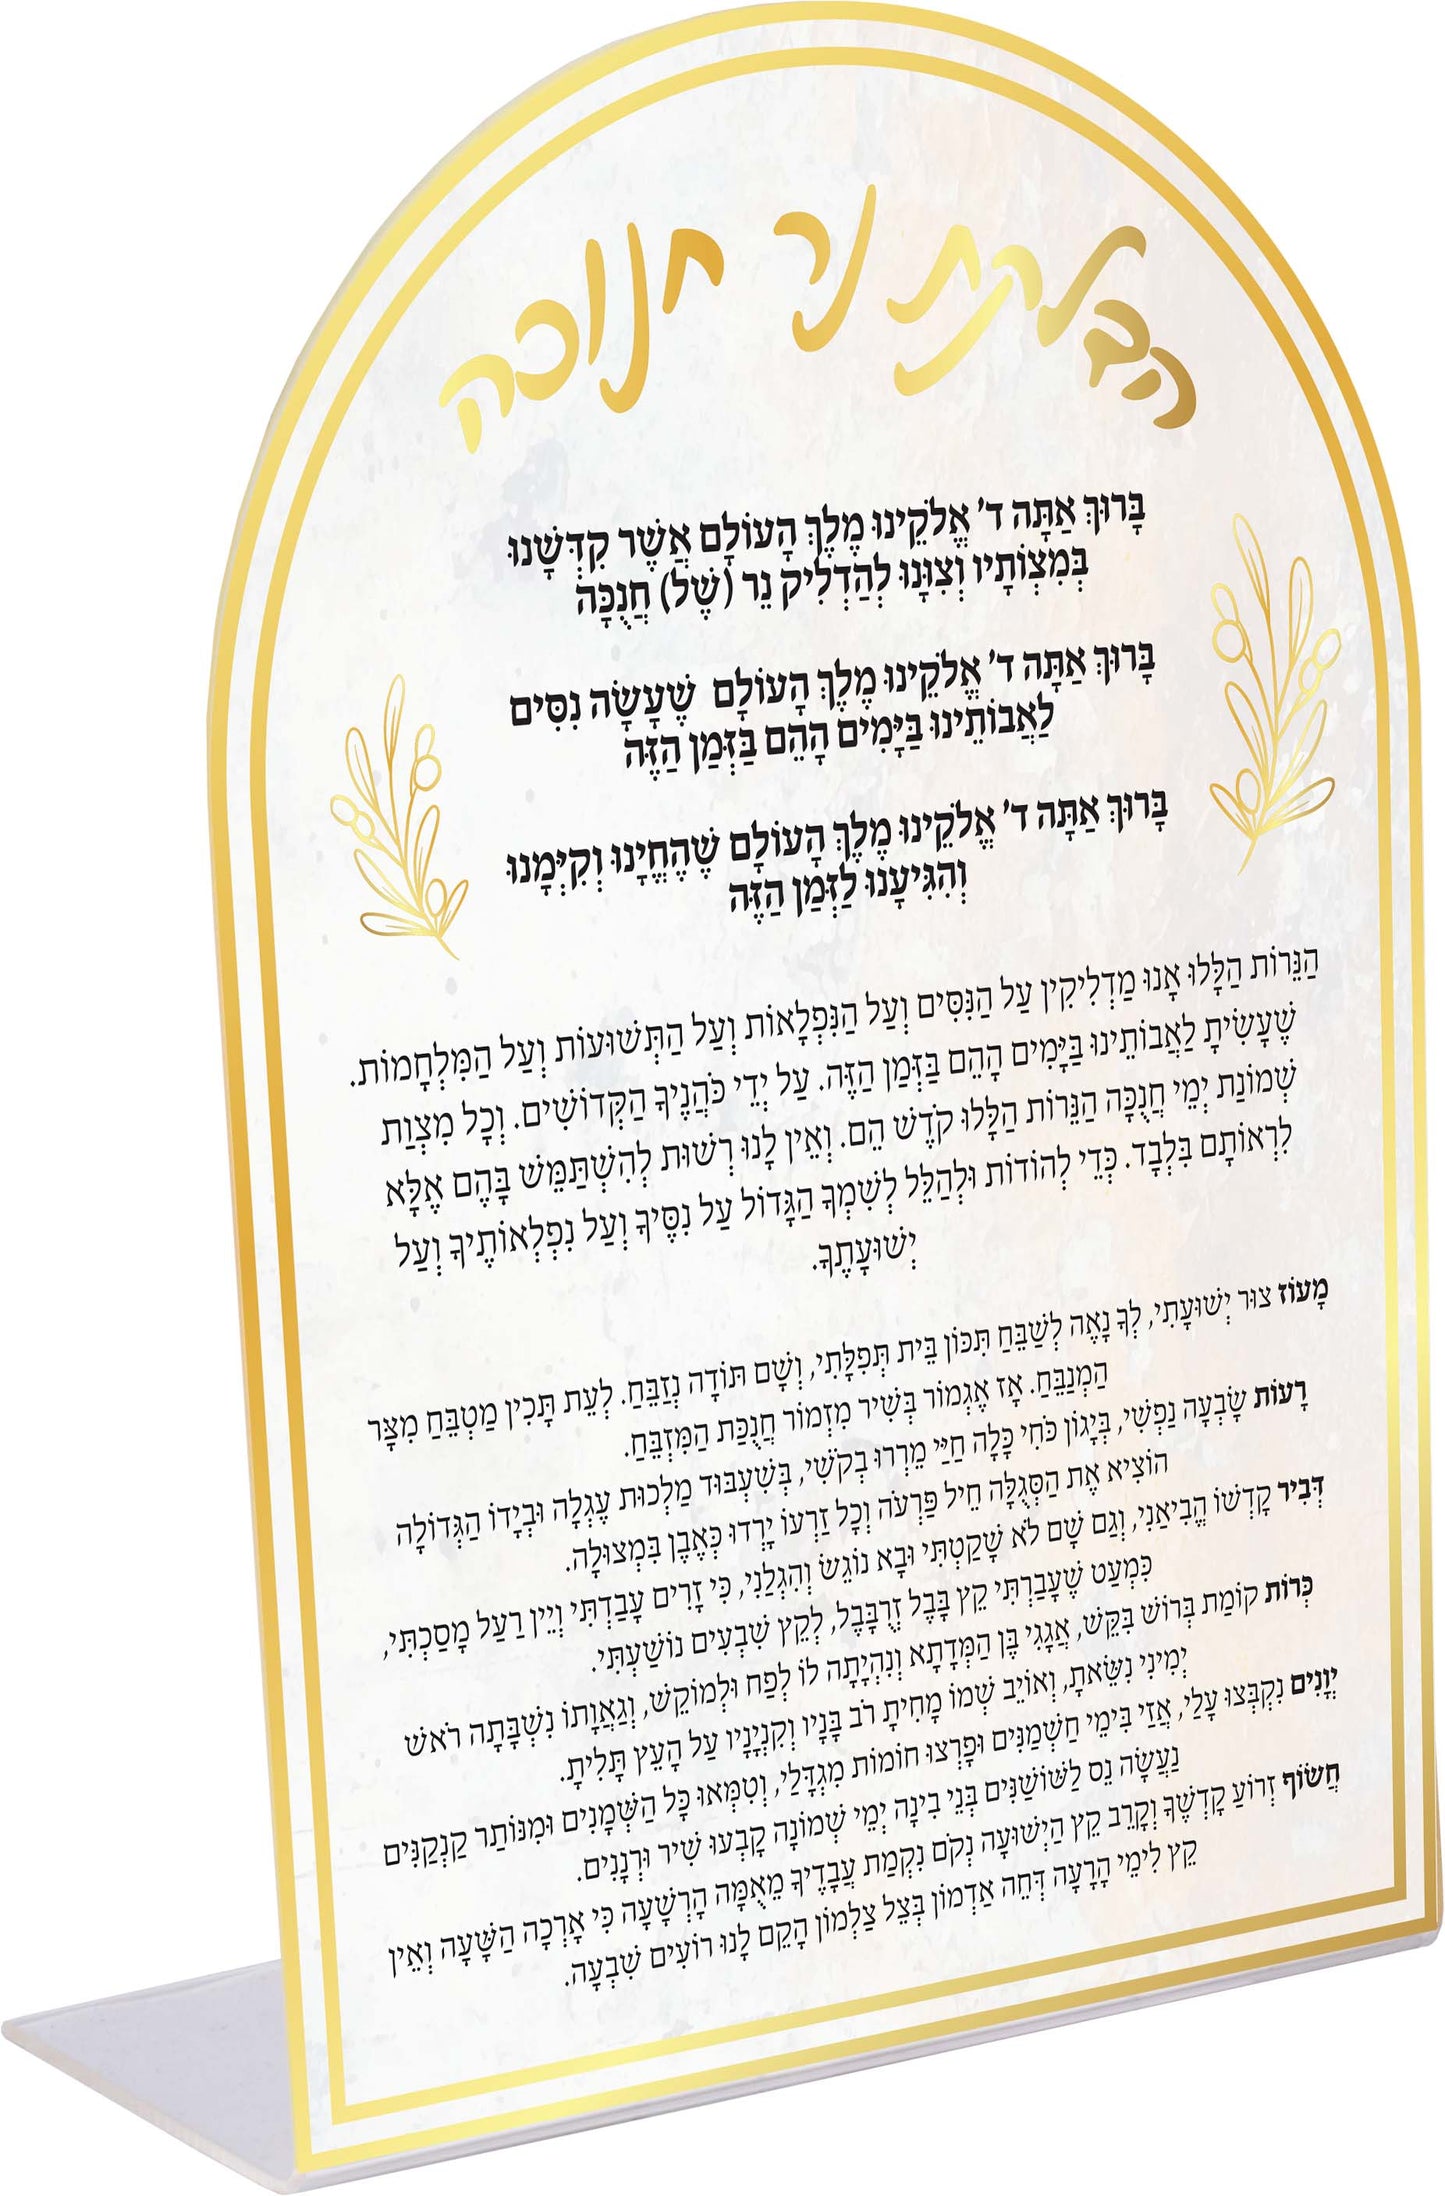 הדלקת נר חנוכה
בָּרוּךְ אַתָּה ד' אֱלֹקֵינוּ מֶלֶךְ הָעוֹלָם אֲשֶׁר קִדְּשָׁנוּ
בְּמִצְוֹתָיו וְצִוָּנוּ לְהַדְלִיק נֵר (שֶׁל) חֲנֻכָּה
בָּרוּךְ אַתָּה ד' אֱלֹקֵינוּ מֶלֶךְ הָעוֹלָם שֶׁעָשָׂה נִסִּים
לַאֲבוֹתֵינוּ בַּיָּמִים הָהֵם בַּזְּמַן הַזֶּה
בָּרוּךְ אַתָּה ד' אֱלֹקֵינוּ מֶלֶךְ הָעוֹלָם שֶׁהֶחֱיָנוּ וְקִיְּמָנוּ
וְהִגִּיעָנוּ לַזְּמַן הַזֶּה
הַנֵּרוֹת הַלָּלוּ אָנוּ מַדְלִיקִין עַל הַנִּסִּים וְעַל הַנִּפְלָאוֹת וְעַל הַתְּשׁוּעוֹת וְעַל הַמִּלְחָמוֹת.
שֶׁעָשִׂיתָ לַאֲבוֹתֵינוּ בַּיָּמִים הָהֵם בַּזְּמַן הַזֶּה. עַל יְדֵי כֹּהֲנֶיךָ הַקְּדוֹשִׁים. וְכָל מִצְוַת
שְׁמוֹנַת יְמֵי חֲנֻכָּה הַנֵּרוֹת הַלָּלוּ קֹדֶשׁ הֵם. וְאֵין לָנוּ רְשׁוּת לְהִשְׁתַּמֵּשׁ בָּהֶם אֶלָּא
לִרְאוֹתָם בִּלְבָד. כְּדֵי לְהוֹדוֹת וּלְהַלֵּל לְשִׁמְךָ הַגָּדוֹל עַל נִסֶּיךָ וְעַל נִפְלְאוֹתֶיךָ וְעַל
יְשׁוּעָתֶךָ.
מָעוֹז צוּר יְשׁוּעָתִי, לְךָ נָאֶה לְשַׁבֵּחַ תִּכּוֹן בֵּית תְּפִלָּתִי, וְשָׁם תּוֹדָה נְזַבֵּחַ. לְעֵת תָּכִין מַטְבֵּחַ מִצָּר
הַמְנַבֵּחַ. אָז אֶגְמוֹר בְּשִׁיר מִזְמוֹר חֲנֻכַּת הַמִּזְבֵּחַ.
רָעוֹת שָׂבְעָה נַפְשִׁי, בְּיָגוֹן כֹּחִי כָּלָה חַיַּי מֵרְרוּ בְקֹשִׁי, בְּשִׁעְבּוּד מַלְכוּת עֶגְלָה וּבְיָדוֹ הַגְּדוֹלָה
הוֹצִיא אֶת הַסְּגֻלָּה חֵיל פַּרְעֹה וְכָל זַרְעוֹ יָרְדוּ כְּאֶבֶן בִּמְצוּלָה.
דְּבִיר קָדְשׁוֹ הֱבִיאַנִי, וְגַם שָׁם לֹא שָׁקַטְתִּי וּבָא נוֹגֵשׂ וְהִגְלַנִי, כִּי זָרִים עָבַדְתִּי וְיֵין רַעַל מָסַכְתִּי,
כִּמְעַט שֶׁעָבַרְתִּי קֵץ בָּבֶל זְרֻבָּבֶל, לְקֵץ שִׁבְעִים נוֹשַׁעְתִּי.
כְּרוֹת קוֹמַת בְּרוֹשׁ בִּקֵּשׁ, אֲגָגִי בֶּן הַמְּדָתָא וְנִהְיָתָה לוֹ לְפַח וּלְמוֹקֵשׁ, וְגַאֲוָתוֹ נִשְׁבָּתָה רֹאשׁ
יְמִינִי נִשֵּׂאתָ, וְאוֹיֵב שְׁמוֹ מָחִיתָ רֹב בָּנָיו וְקִנְיָנָיו עַל הָעֵץ תָּלִיתָ.
יְוָנִים נִקְבְּצוּ עָלַי, אֲזַי בִּימֵי חַשְׁמַנִּים וּפָרְצוּ חוֹמוֹת מִגְדָּלַי, וְטִמְּאוּ כָּל הַשְּׁמָנִים וּמִנּוֹתַר קַנְקַנִּים
נַעֲשָׂה נֵס לַשּׁוֹשַׁנִּים בְּנֵי בִינָה יְמֵי שְׁמוֹנָה קָבְעוּ שִׁיר וּרְנָנִים.
חֲשׂוֹף זְרוֹעַ קָדְשֶׁךָ וְקָרֵב קֵץ הַיְשׁוּעָה נְקֹם נִקְמַת עֲבָדֶיךָ מֵאֻמָּה הָרְשָׁעָה כִּי אָרְכָה הַשָּׁעָה וְאֵין
קֵץ לִימֵי הָרָעָה דְּחֵה אַדְמוֹן בְּצֵל צַלְמוֹן הָקֵם לָנוּ רוֹעִים שִׁבְעָה.